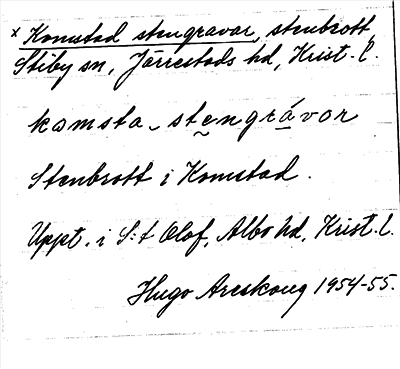 x Komstad stengravar, stenbrott,
Stiby sn, Järrestads hd, Krist. l.
komsta stengrávor
Stenbrott i Komstad.
Uppt. i S:t Olof, Albo hd, Krist. l.
Hugo Areskoug 1954-55.